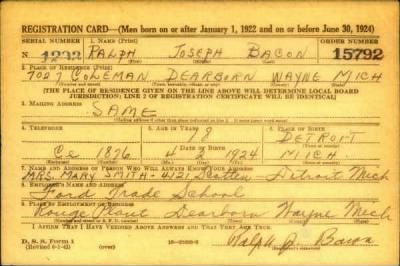 REGISTRATION CARD—(Men born on or after January 1, 1922 and on or before June 30, 1924)
SERIAL NUMBER 1. NAME (Print) ORDER NUMBER
RALPH JOSEPH BACON 15792
2. PLACE OF RESIDENCE (Print)
7027 COLEMAN DEARBORN WAYNE MICH
[THE PLACE OF RESIDENCE GIVEN ON THE LINE ABOVE WILL DETERMINE LOCAL BOARD
JURISDICTION; LINE 2 OF REGISTRATION CERTIFICATE WILL BE IDENTICAL]
3. MAILING ADDRESS
SAME
4. TELEPHONE 5. AGE IN YEARS 6. PLACE OF BIRTH
18 DETROIT
Ce 1876 1924 MICH
7. NAME AND ADDRESS OF PERSON WHO WILL ALWAYS KNOW YOUR ADDRESS
MRS. MARY SMITH - 4121 Detroit Mich
8. EMPLOYER'S NAME AND ADDRESS
Ford Trade School
9. PLACE OF EMPLOYMENT OR BUSINESS
Rouge Plant Dearborn Wayne Mich
I AFFIRM THAT I HAVE VERIFIED ABOVE ANSWERS AND THAT THEY ARE TRUE.
D. S. S. Form 1
(Revised 6-9-42) (over)
Ralph J. Bacon